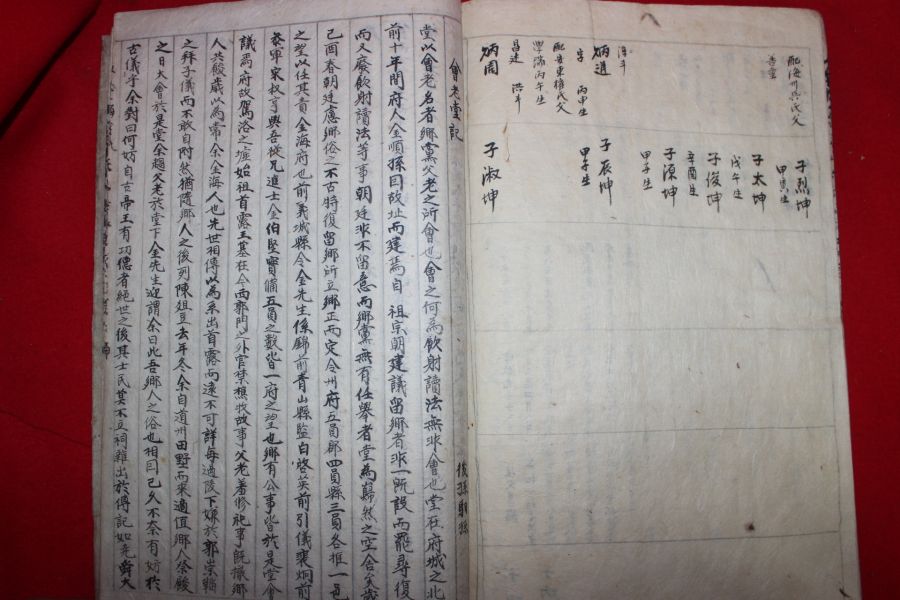 配海州吳氏父
炳進
丙申生
配安東權氏父
丙午生
炳周
昌建 浩斗
子烈坤
甲寅生
子太坤
戊午生
子俊坤
辛酉生
子源坤
甲子生
子辰坤
甲子生
子淑坤
會老堂記 後孫馹孫
堂以會老名者鄕黨父老之所會也會之何爲飮射讀法無非會也堂在府城之北
前十年間府人金順孫因故址而建焉自 祖宗朝建議留鄕者非一旣設而罷尋復
而又廢飮射讀法等事朝廷非不留意而鄕黨無有任擧者堂爲巋然之空舍矣歲
己酉春朝廷慮鄕俗之不古特復留鄕所立鄕正而定令州府五員郡四員縣三員各推一邑
之望以任其責金海府也前義城縣令金先生係錦前靑山縣監白啓英前引儀裵炯前
參軍宋叔亨與吾從兄進士金伯堅實備五員之數皆一府之望也鄕有公事皆於是堂會
議焉府故駕洛之墟始祖首露王墓在今西郭門之外官禁樵牧故事父老羞修祀事旣撤鄕
人共餕歲以爲常余金海人也先世相傳以爲系出首露而遠不可詳每過陵下嫌於郭崇韜
之拜子儀而不敢自附然猶隨鄕人之後列陳俎豆去年冬余自道州田野而來適値鄕人祭餕
之日大會於是堂余趨父老於堂下金先生迎謂余曰此吾鄕人之俗也相因已久不奈有妨於
古儀乎余對曰何妨自古帝王有功德者絕世之後其士民莫不立祠雜出於傳記如堯舜大